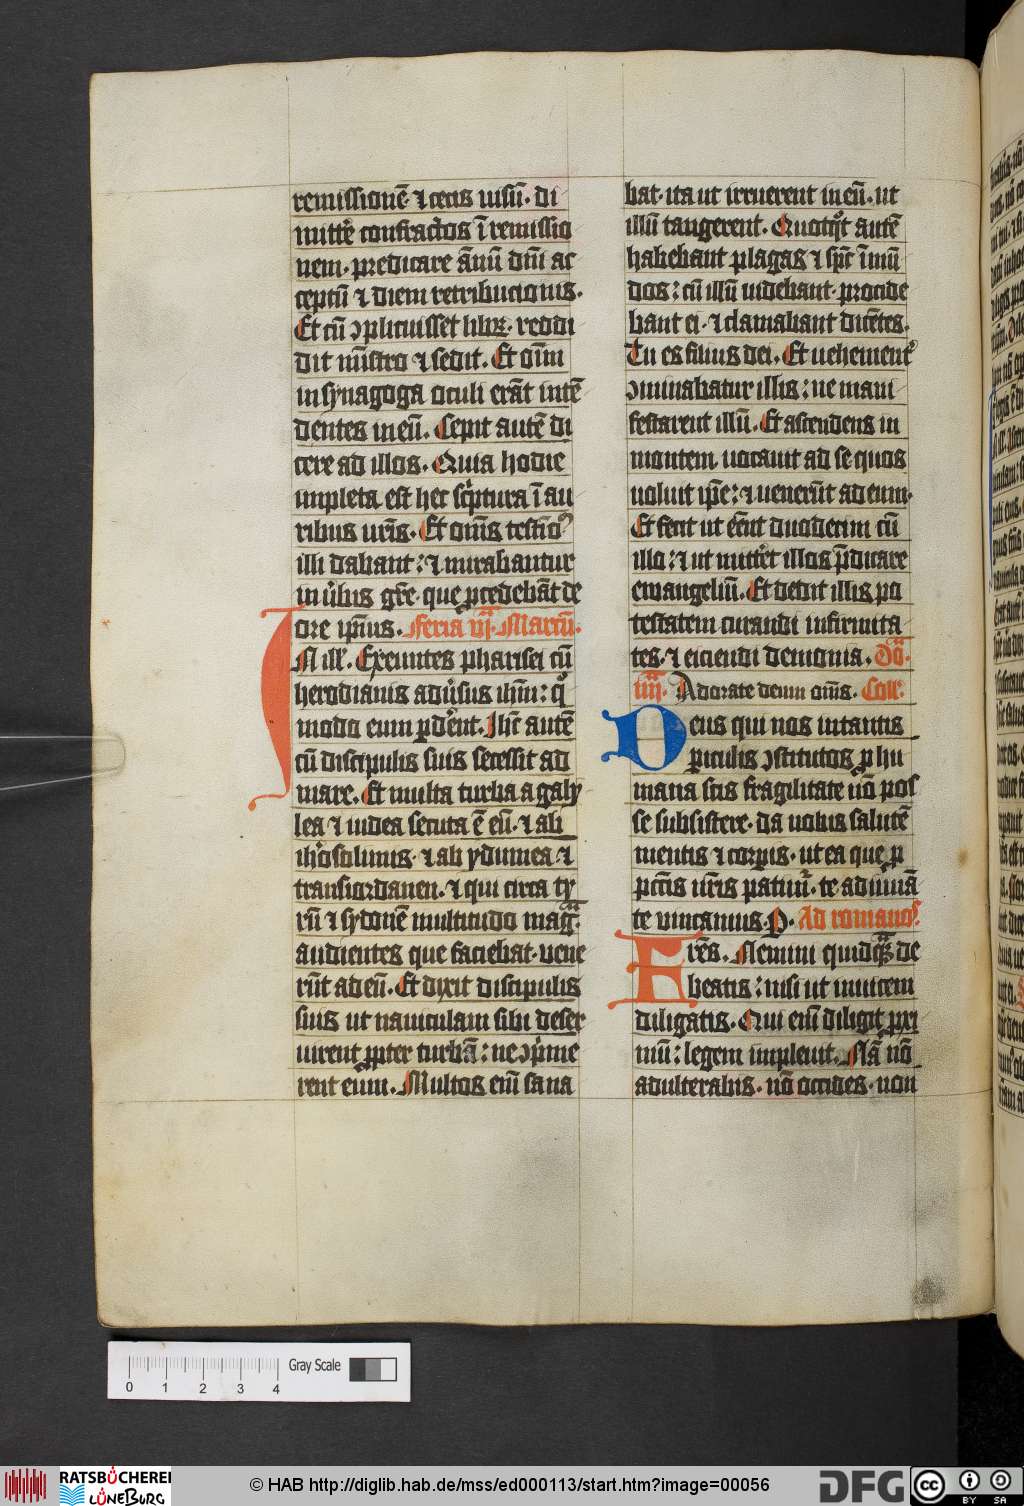 remissionē ⁊ cecis uisū. di
mittē confractos ī remissio
nem. predicare ānū dn̄i ac
ceptū ⁊ diem retribucionis.
Et cū ꝯplicuisset librꝫ. reddi
dit mīstro ⁊ sedit. Et oīm
in synagoga oculi erāt intē
dentes in eū. Cepit autē di
cere ad illos. Quia hodie
impleta est hec sc̄ptura ī au
ribus ur̄is. Et om̄s testīoꝰ
illi dabant: ⁊ mirabantur
in u̾bis gr̄e. que ꝓcedebāt de
ore ipīus. Feria vj. Marcū.
IN ill'. Exeuntes pharisei cū
herodianis adu̾sus ihm̄: qͦ
modo eum ꝑdēent. Ihc̄ autē
cū discipulis suis secessit ad
mare. Et multa turba a galy
lea ⁊ iudea secuta ē eū. ⁊ ab
ih̾osolimis. ⁊ ab ydumea. ⁊
transiordanen. ⁊ qui circa ty
rū ⁊ sydonē multitudo magͣ.
audientes que faciebat. vene
rūt ad eū. Et dixit discipulis
suis ut nauiculam sibi deser
uirent ꝓpter turbā: ne ꝯpͥme
rent eum. Multos em̄ sana
bat. ita ut irruerent in eū. ut
illū tangerent. Quotqͦt autē
habebant plagas ⁊ spc̄ īmū
dos: cū illū uidebant. procide
bant ei. ⁊ clamabant dicētes.
Tu es filius dei. Et uehement̾
ꝯminabatur illis: ne mani
festarent illū. Et ascendens in
montem uocauit ad se quos
uoluit ip̄e: ⁊ uenerūt ad eum.
Et fecit ut eēnt duodecim cū
illo: ⁊ ut mitt̾et illos p̄dicare
ewangeliū. Et dedit illis po
testatem curandi infirmita
tes. ⁊ eiciendi demonia. Dōͣ.
iiij. Adorate deum om̄s. Coll'.
Deus qui nos in tantis
ꝑiculis ꝯstitutos ꝑ hu
mana scis fragilitate nō pos
se subsistere. da nobis salutē
mentis ⁊ corꝑis. ut ea que ꝑ
pcc̄is nr̄is patimur. te adiuuā
te vincamus. P. Ad romanos.
Fr̄es. Nemini quidqͣꝫ de
beatis: nisi ut inuicem
diligatis. Qui em̄ diligit ꝓxi
mū: legem impleuit. Nā nō
adulterabis. nō occides. non
0 1 2 3 4
Gray Scale
RATSBÜCHEREI
LÜNEBURG
© HAB http://diglib.hab.de/mss/ed000113/start.htm?image=00056
DFG
cc
BY SA